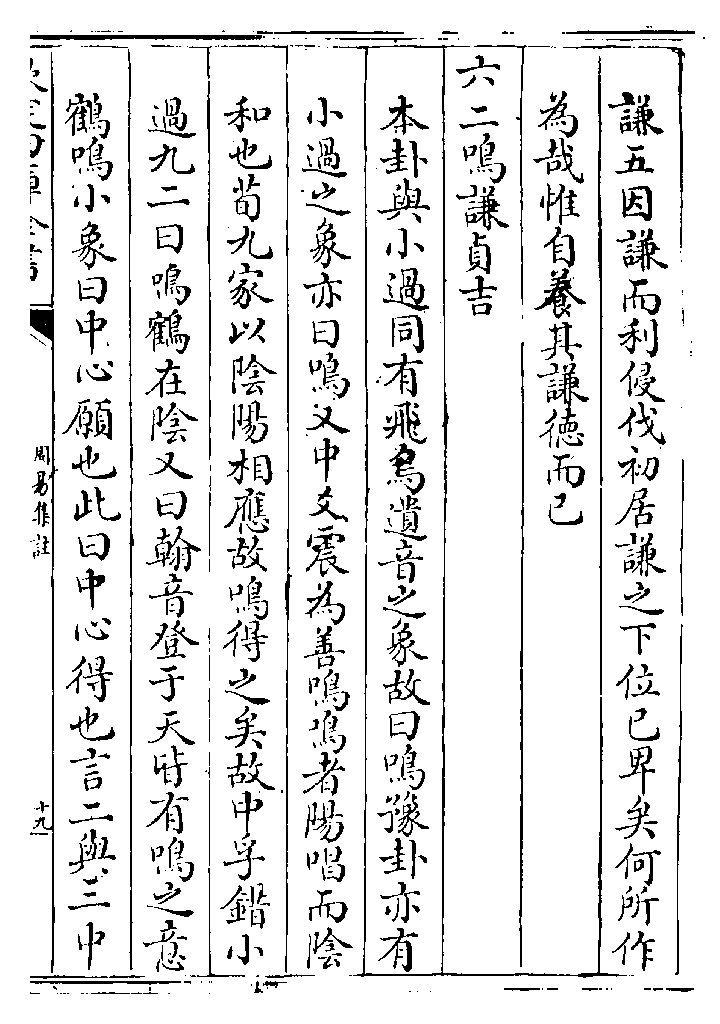 謙五因謙而利侵伐初居謙之下位已卑矣何所作
為哉惟自養其謙徳而已
六二鳴謙貞吉
本卦與小過同有飛鳥遺音之象故曰鳴豫卦亦有
小過之象亦曰鳴又中爻震為善鳴鳴者陽唱而陰
和也荀九家以陰陽相應故鳴得之矣故中孚錯小
過九二曰鳴鶴在陰又曰翰音登于天皆有鳴之意
鶴鳴小象曰中心願也此曰中心得也言二與三中
欽定四庫全書
周易集註
十九